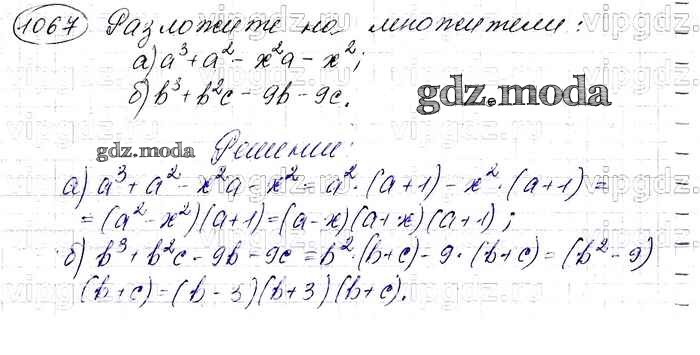 1067 Разложите на множители:
а) a³ + a² - x²a - x²;
б) b³ + b²c - 9b - 9c.
gdz.moda
gdz.moda Решение:
а) a³ + a² - x²a - x² = a² · (a + 1) - x² · (a + 1) =
= (a² - x²)(a + 1) = (a - x)(a + x)(a + 1);
б) b³ + b²c - 9b - 9c = b² · (b + c) - 9 · (b + c) = (b² - 9)
(b + c) = (b - 3)(b + 3)(b + c).